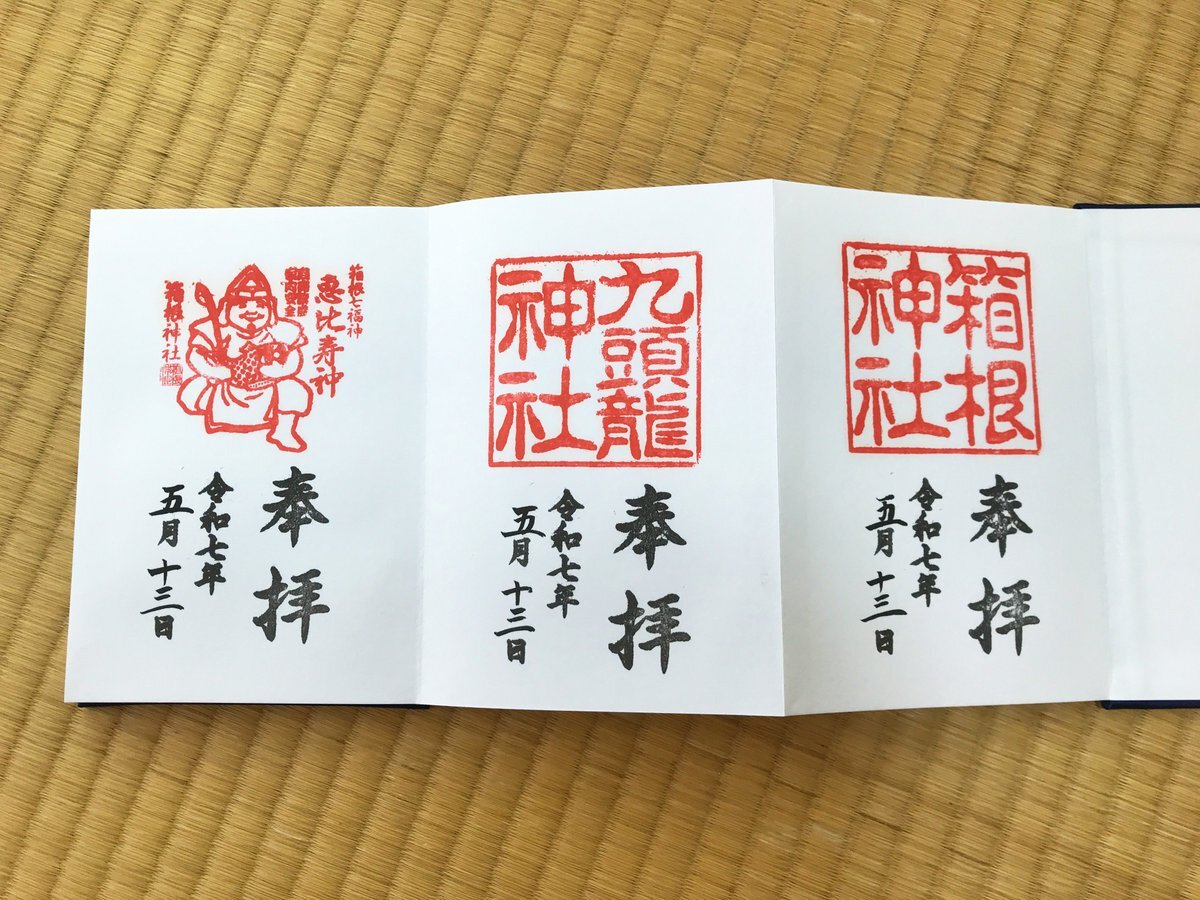 箱根
神社
奉拝
令和七年
五月十三日
九頭龍
神社
奉拝
令和七年
五月十三日
箱根七福神
恵比寿神
箱根神社
奉拝
令和七年
五月十三日